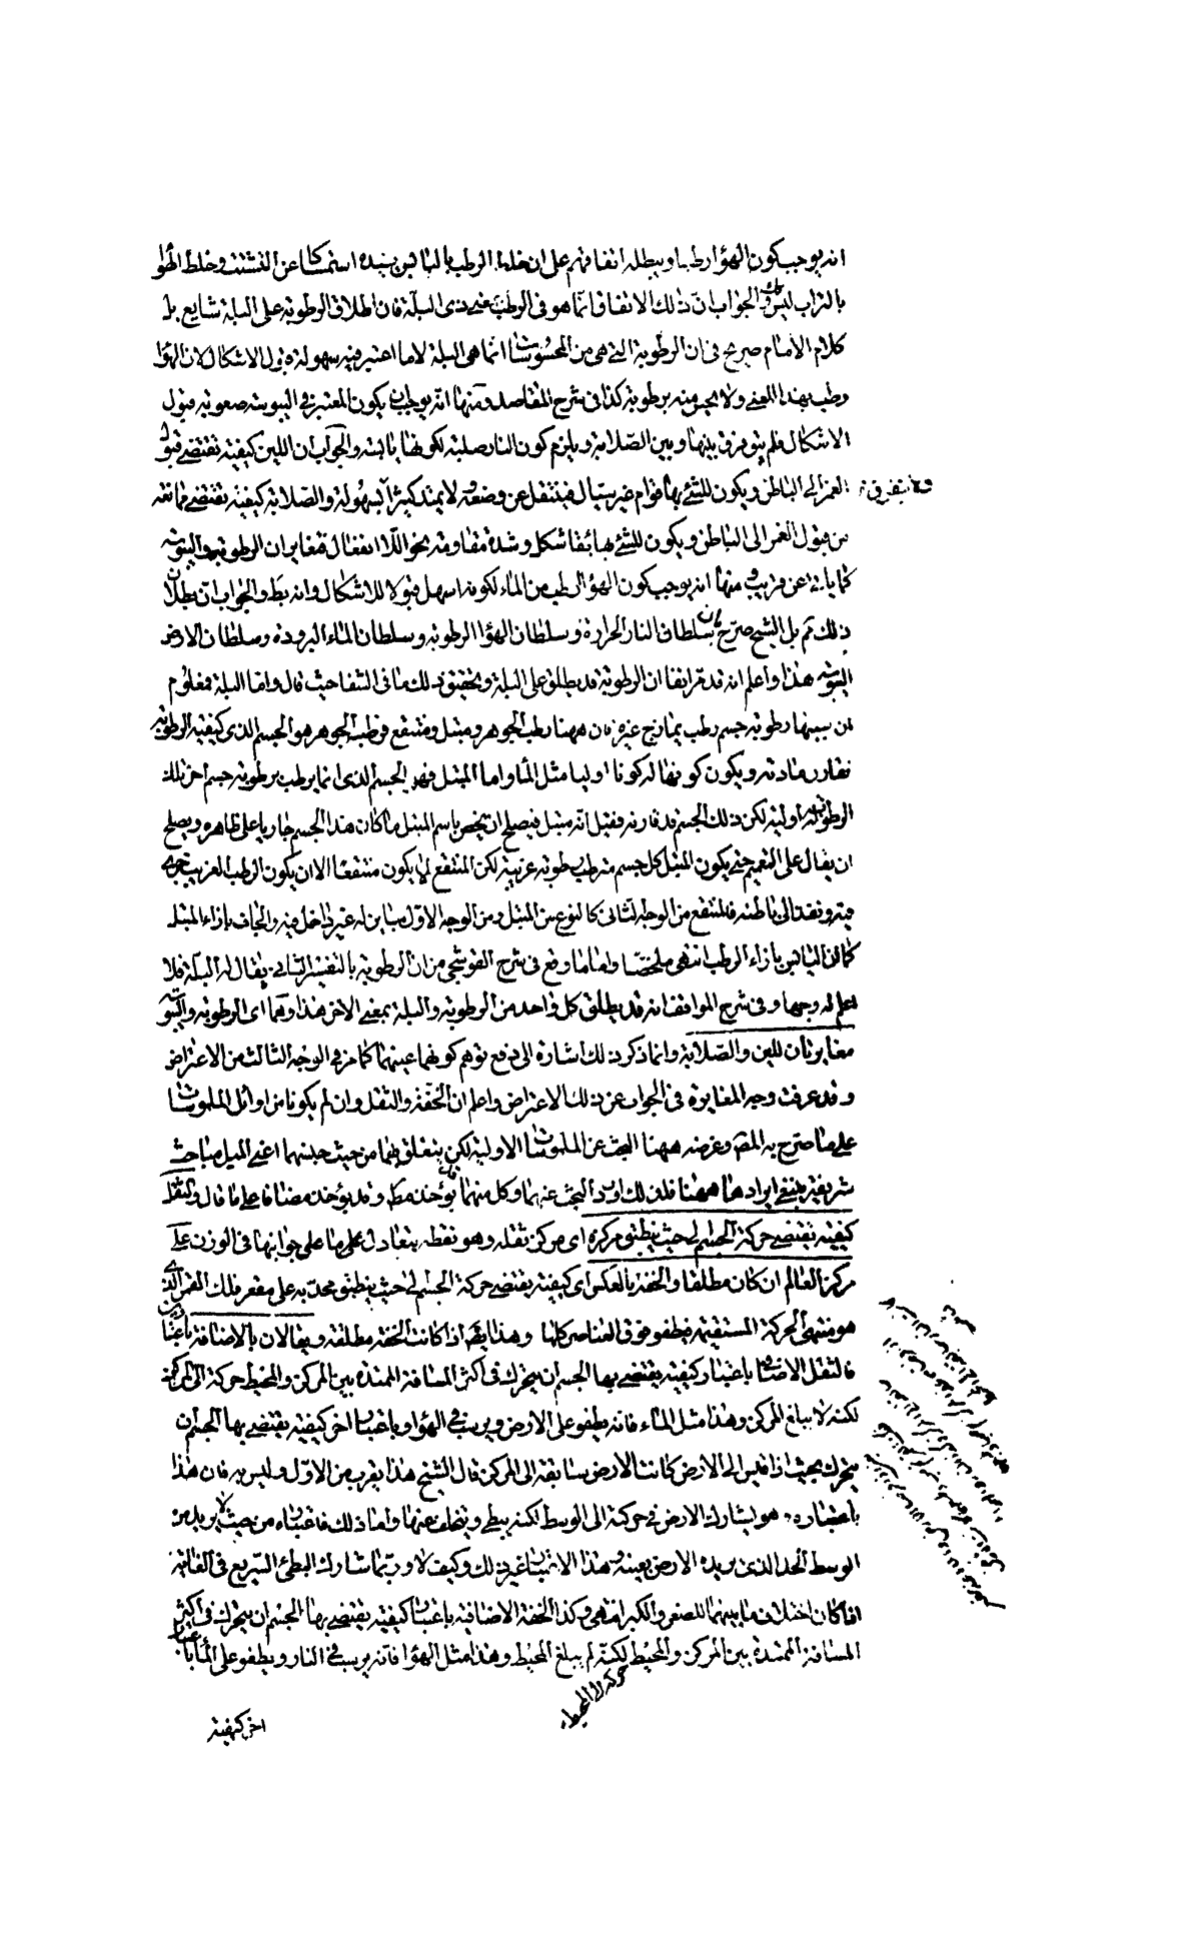 انه يوجب كون الهواء رطبا ويبطله اتفاقهم على ان خلط الرطب باليابس يفيده استمساكا عن التشتت وخلط الهواء
بالتراب ليس كك والجواب ان ذلك الاتفاق انما هو في الرطب بمعنى ذي البلة فان اطلاق الرطوبة على البلة شايع بل
كلام الامام صريح في ان الرطوبة التي هي من المحسوسات انما هي البلة لا ما اعتبر فيه سهولة قبول الاشكال لان الهواء
رطب بهذا المعنى ولا يحس منه برطوبة كذا في شرح المقاصد ومنها انه يوجب ان يكون المعتبر في اليبوسة صعوبة قبول
الاشكال فلم يبق فرق بينها وبين الصلابة ويلزم كون النار صلبة لكونها يابسة والجواب ان اللين كيفية تقتضي قبول
الغمز الى الباطن ويكون للشئ بها قوام غير سيال فينتقل عن وضعه ولا يمتد كثيرا بسهولة والصلابة كيفية تقتضي ممانعة
ولا يتفرق
من قبول الغمز الى الباطن ويكون للشئ بها بقاء شكل وشدة مقاومة نحو اللاانفعال فتغايران الرطوبة واليبوسة
كما ياتي عن قريب ومنها انه يوجب كون الهواء ارطب من الماء لكونه اسهل قبولا للاشكال وانه بط والجواب ان بطلان
ذلك ثم بل الشيخ صرح بان سلطان النار الحرارة وسلطان الهواء الرطوبة وسلطان الماء البرودة وسلطان الارض
اليبوسة هذا واعلم انه قد مر انفا ان الرطوبة قد يطلق على البلة وتحقيق ذلك ما في الشفا حيث قال واما البلة فمعلوم
ان سببها رطوبة جسم رطب يمازج غيره فان ههنا رطب الجوهر ومبتل ومنتقع فرطب الجوهر هو الجسم الذي كيفية الرطوبة
تقارن مادته ويكون كونها له كونا اوليا مثل الماء واما المبتل فهو الجسم الذي انما يرطب برطوبة جسم اخر تلك
الرطوبة له اولية لكن ذلك الجسم قد قارنه فقيل انه مبتل فيصلح ان يخص باسم المبتل ما كان هذا الجسم جاريا على ظاهره ويصلح
ان يقال على التعميم حتى يكون المبتل كل جسم مترطب رطوبة غريبة لكن المنتقع لا يكون منتقعا الا ان يكون الرطب الغريب جرى
فيه ونفذ الى باطنه فالمنتقع من الوجه الثاني كالنوع من المبتل ومن الوجه الاول مباين له غير داخل فيه والجاف بازاء المبتل
كما ان اليابس بازاء الرطب انتهى ملخصا واما ما وقع في شرح القوشجي من ان الرطوبة بالتفسير الثاني يقال له البلة فلا
اعلم له وجها وفي شرح المواقف انه قد يطلق كل واحد من الرطوبة والبلة بمعنى الاخر هذا وهما اي الرطوبة واليبوسة
مغايرتان للين والصلابة وانما ذكر ذلك اشارة الى دفع توهم كونهما عينهما كما مر في الوجه الثالث من الاعتراض
وقد عرفت وجه المغايرة في الجواب عن ذلك الاعتراض واعلم ان الخفة والثقل وان لم يكونا من اوائل الملموسات
على ما صرح به المص وغرضه ههنا البحث عن الملموسات الاولية لكن يتعلق بهما من حيث جنسهما اعني الميل مباحث
شريفة ينبغي ايرادها ههنا فلذلك اورد البحث عنهما وكل منهما قد يؤخذ مطلقا وقد يؤخذ مضافا على ما قال والثقل
كيفية تقتضي حركة الجسم الى حيث ينطبق مركزه اي مركز ثقله وهو نقطة يتعادل ما على جوانبها في الوزن على
مركز العالم ان كان مطلقا والخفة بالعكس اي كيفية يقتضي حركة الجسم الى حيث ينطبق محدبه على مقعر فلك القمر الذي
هو منتهى الحركة المستقيمة فيطفو فوق العناصر كلها وهذا ايضا اذا كانت الخفة مطلقة ويقالان بالاضافة باعتبارين
فالثقل الاضافي باعتبار كيفية يقتضي بها الجسم ان يتحرك في اكثر المسافة الممتدة بين المركز والمحيط حركة الى المركز
لكنه لا يبلغ المركز وهذا مثل الماء فانه يطفو على الارض ويرسب في الهواء وباعتبار اخر كيفية يقتضي بها الجسم ان
يتحرك بحيث اذا قيس الى الارض كانت الارض سابقة الى المركز قال الشيخ هذا يقرب من الاول وليس به فان هذا
باعتباره هو يشارك الارض في حركة الى الوسط لكنه يبطئ ويتخلف عنها واما ذلك فاعتباره من حيث لا يريد من
الوسط الحد الذي يريده الارض بعينه وهذا الاعتبار غير ذلك وكيف لا وربما شارك البطئ السريع في الغاية
اذا كان اختلاف ما بينهما للصغر والكبر انتهى وكذا الخفة الاضافية باعتبار كيفية يقتضي بها الجسم ان يتحرك في اكثر
المسافة الممتدة بين المركز والمحيط حركة الى المحيط لكنه لم يبلغ المحيط وهذا مثل الهواء فانه يرسب في النار ويطفو على الماء باعتبار
اخر كيفية